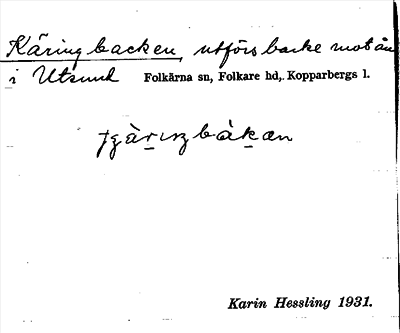 Käringbacken, utförsbacke mot ån
i Utsund Folkärna sn, Folkare hd, Kopparbergs l.
Karin Hessling 1931.